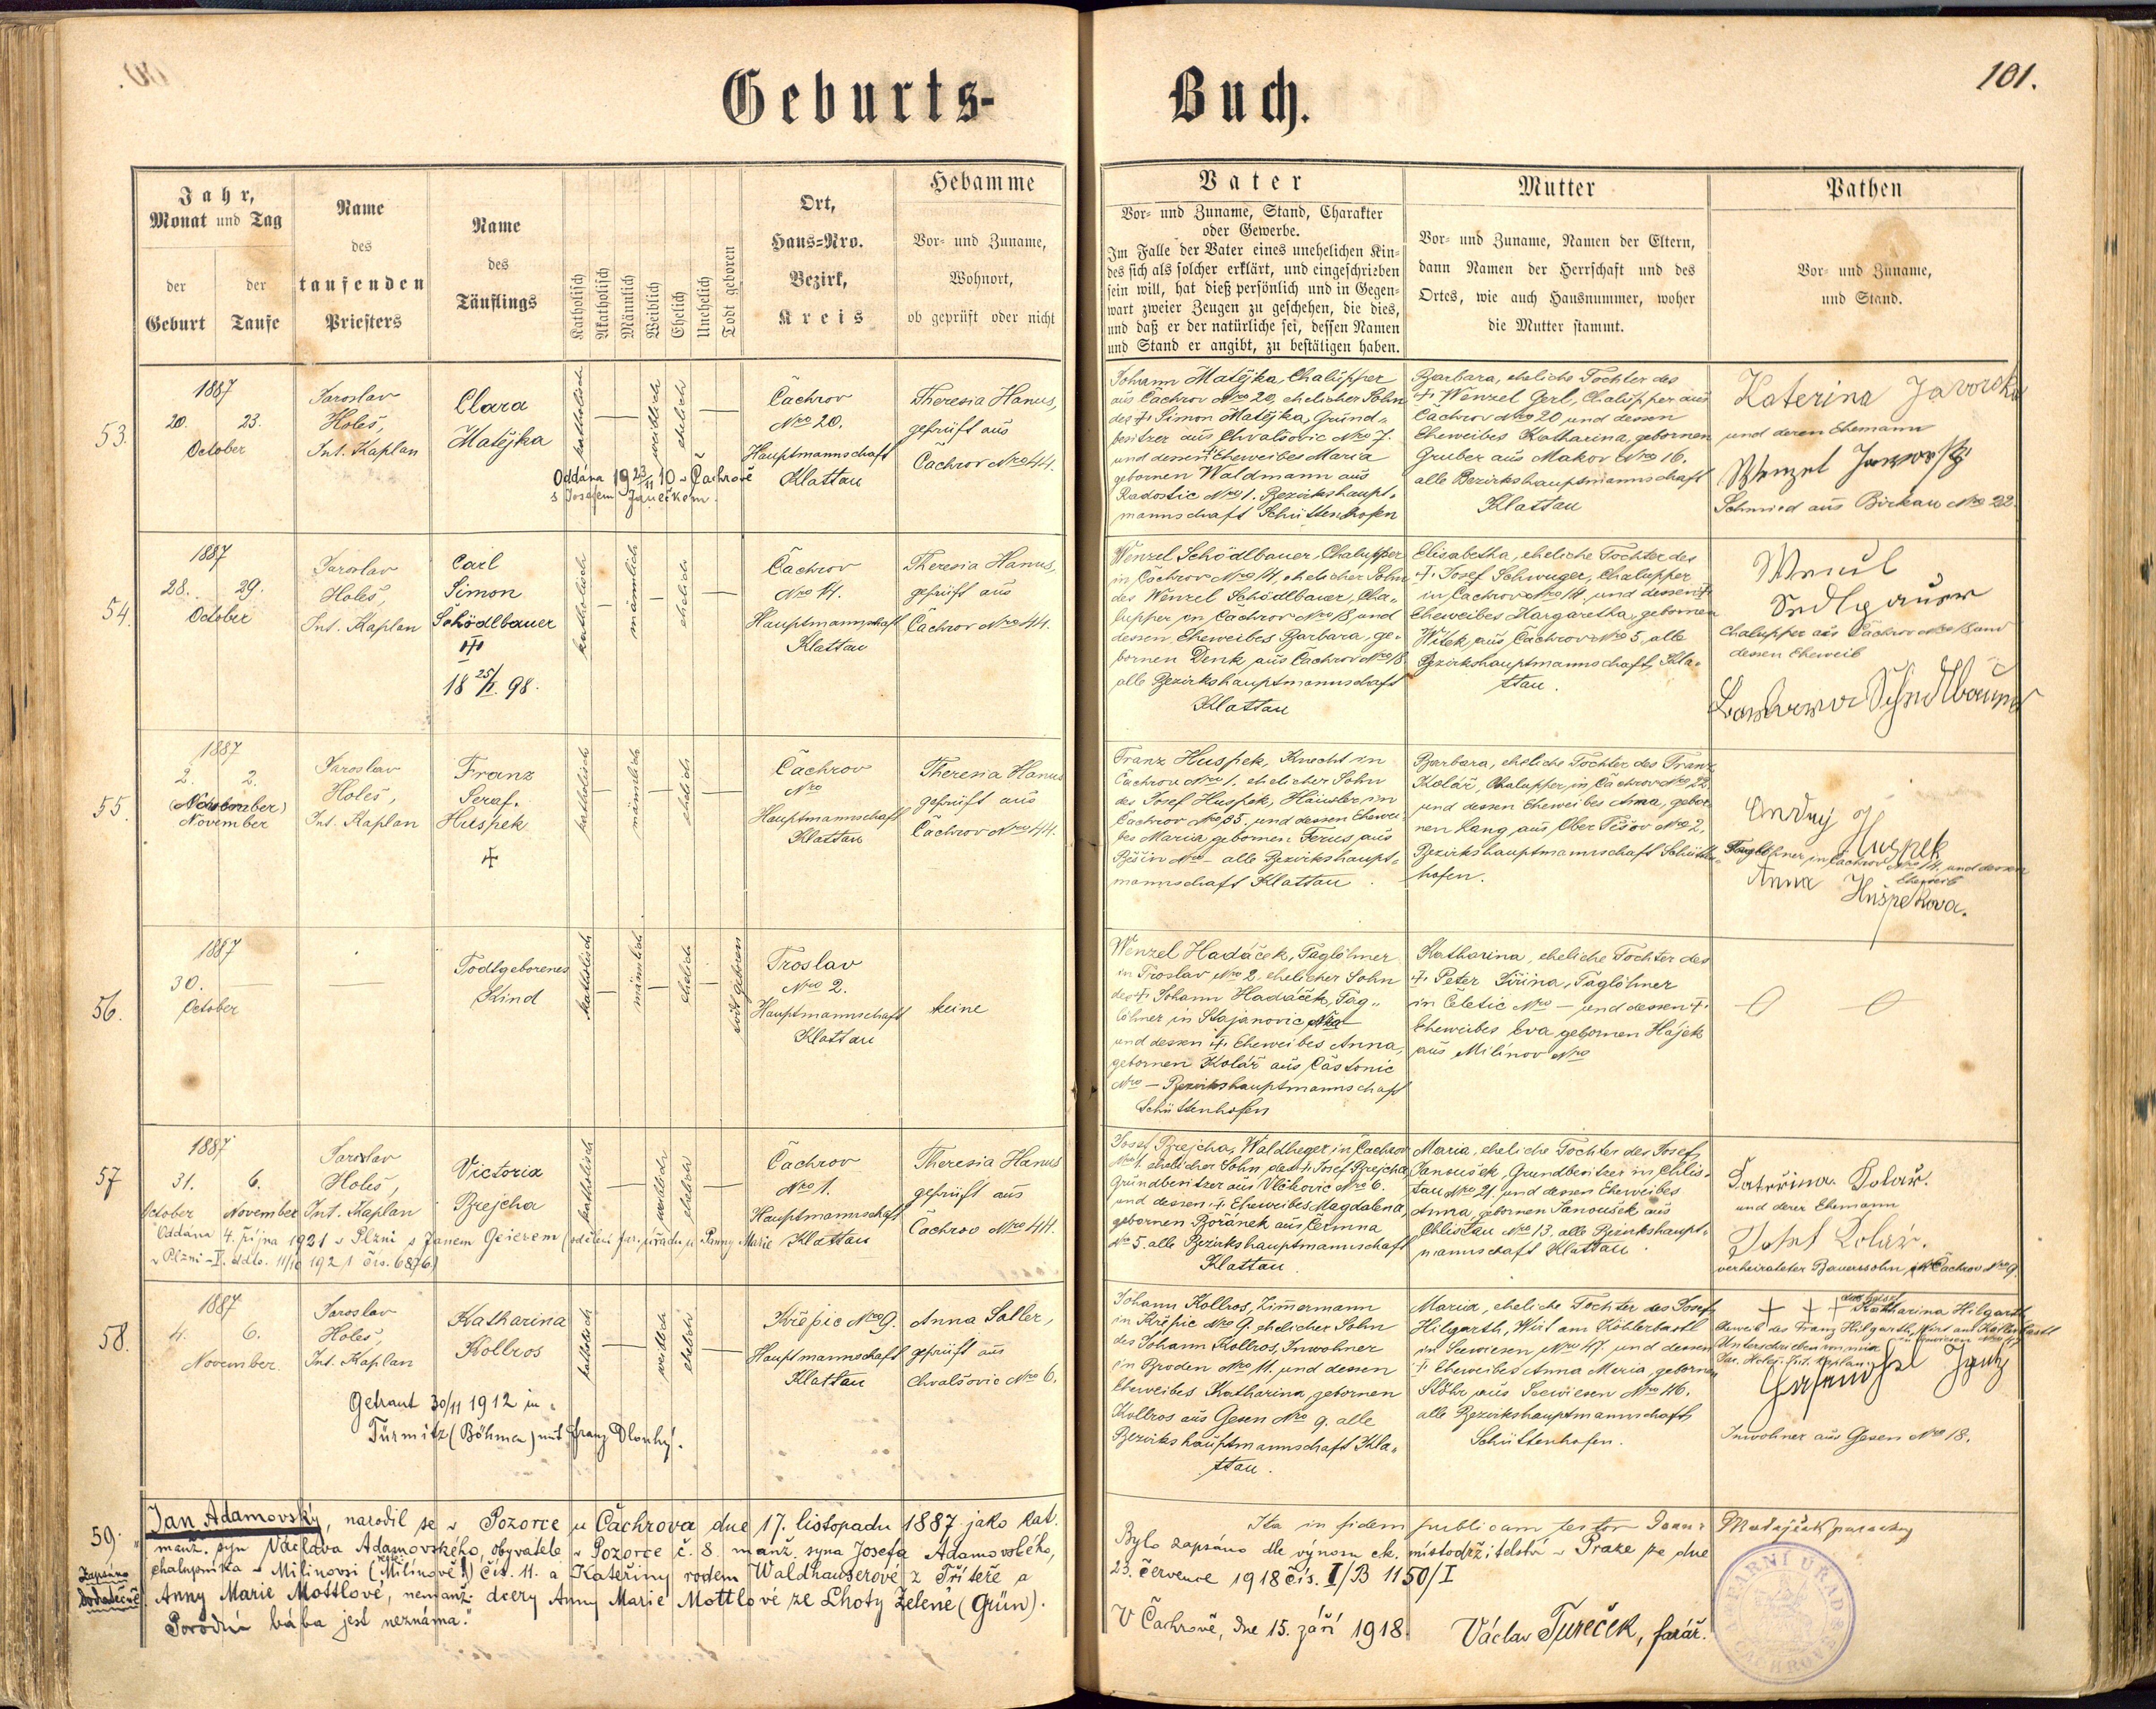 Geburts-
Buch.
101.
Jahr,
Monat und Tag
der Geburt
der Taufe
Name
des
taufenden
Priesters
Name
des
Täuflings
Katholisch
Akatholisch
Männlich
Weiblich
Ehelich
Unehelich
Todt geboren
Ort,
Haus-Nro.
Bezirk,
Kreis
Hebamme
Vor- und Zuname,
Wohnort,
ob geprüft oder nicht
Vater
Vor- und Zuname, Stand, Charakter
oder Gewerbe.
Im Falle der Vater eines unehelichen Kin-
des sich als solcher erklärt, und eingeschrieben
sein will, hat dieß persönlich und in Gegen-
wart zweier Zeugen zu geschehen, die dies,
und daß er der natürliche sei, dessen Namen
und Stand er angibt, zu bestätigen haben.
Mutter
Vor- und Zuname, Namen der Eltern,
dann Namen der Herrschaft und des
Ortes, wie auch Hausnummer, woher
die Mutter stammt.
Pathen
Vor- und Zuname,
und Stand.
53.
1887
20. 23.
October
Jaroslav
Holeš,
Int. Kaplan
Clara
Matějka
katholisch
weiblich
ehelich
Oddána 19 23/11 10 v Čachrově
s Josefem Janečkem.
Čachrov
Nro 20.
Hauptmannschaft
Klattau
Theresia Hanus,
geprüft aus
Čachrov Nro 44.
Johann Matějka, Chalupper
aus Čachrov Nro 20, ehelicher Sohn
des † Simon Matějka, Grund-
besitzer aus Chvalšovic Nro 7.
und dessen † Eheweibes Maria
gebornen Waldmann aus
Radostic Nro 1. Bezirkshaupt-
mannschaft Schüttenhofen
Barbara, eheliche Tochter des
† Wenzel Gerl, Chalupper aus
Čachrov Nro 20 und dessen
Eheweibes Katharina, gebornen
Gruber aus Makov Nro 16.
alle Bezirkshauptmannschaft
Klattau
Katerina Javorska
und deren Ehemann
Wenzel Jaworsky
Schmied aus Birkau Nro 22.
54.
1887
28. 29.
October
Jaroslav
Holeš,
Int. Kaplan
Carl
Simon
Schödlbauer
†
18 25/I. 98.
katholisch
männlich
ehelich
Čachrov
Nro 14.
Hauptmannschaft
Klattau
Theresia Hanus,
geprüft aus
Čachrov Nro 44.
Wenzel Schödlbauer, Chalupper
in Čachrov Nro 14, ehelicher Sohn
des Wenzel Schödlbauer, Cha-
lupper in Čachrov Nro 18 und
dessen Eheweibes Barbara, ge-
bornen Denk aus Čachrov Nro 18.
alle Bezirkshauptmannschaft
Klattau
Elisabetha, eheliche Tochter des
† Josef Schwuger, Chalupper
in Čachrov Nro 14, und dessen †
Eheweibes Margaretha, gebornen
Witek, aus Čachrov Nro 5, alle
Bezirkshauptmannschaft, Kla-
ttau.
Chalupper aus Čachrov Nro 18 und
dessen Eheweib
55.
1887
2. 2.
(November)
November
Jaroslav
Holeš,
Int. Kaplan
Franz
Seraf.
Huspek
†
katholisch
männlich
ehelich
Čachrov
Nro
Hauptmannschaft
Klattau
Theresia Hanus
geprüft aus
Čachrov Nro 44.
Franz Huspek, Knecht in
Čachrov Nro 1. ehelicher Sohn
des Josef Huspek, Häusler in
Čachrov Nro 35. und dessen Ehewei-
bes Maria, gebornen Ferus aus
Běšin Nro — alle Bezirkshaupt-
mannschaft Klattau.
Barbara, eheliche Tochter des Franz
Kolář, Chalupper, in Čachrov Nro 22
und dessen Eheweibes Anna, gebor-
nen Lang aus Ober Těšov Nro 2,
Bezirkshauptmannschaft Schütten-
hofen.
Huspek
Taglöhner in Čachrov Nro 14. und dessen
Eheweib
Anna Huspekova.
56.
1887
30.
October
Todtgeborenes
Kind
katholisch
männlich
ehelich
todt geboren
Troslav
Nro 2.
Hauptmannschaft
Klattau
keine
Wenzel Hadáček, Taglöhner
in Troslav Nro 2. ehelicher Sohn
des † Johann Hadáček, Tag-
löhner in Stajanovic Nro
und dessen † Eheweibes Anna,
gebornen Kolář aus Častonic
Nro — Bezirkshauptmannschaft
Schüttenhofen
Katharina, eheliche Tochter des
† Peter Šiřina, Taglöhner
in Čeletic Nro — und dessen †
Eheweibes Eva, gebornen Hájek
aus Milínov Nro
57
1887
31. 6.
October November
Jaroslav
Holeš,
Int. Kaplan
Victoria
Brejcha
katholisch
weiblich
ehelich
Oddána 4. října 1921 v Plzni s Janem Geierem (sdělení far. úřadu u Panny Marie
v Plzni-I. ddto. 11/10 1921 čís. 6876.)
Čachrov
Nro 1.
Hauptmannschaft
Klattau
Theresia Hanus
geprüft aus
Čachrov Nro 44.
Josef Brejcha, Waldheger in Čachrov
Nro 1. ehelicher Sohn des † Josef Brejcha
Grundbesitzer aus Vlčkovic Nro 6.
und dessen † Eheweibes Magdalena,
gebornen Boránek aus Čermna
Nro 5. alle Bezirkshauptmannschaft
Klattau
Maria, eheliche Tochter des Josef
Janoušek, Grundbesitzer in Chlis-
tau Nro 21, und dessen Eheweibes
Anna, gebornen Janoušek aus
Chlistau Nro 13, alle Bezirkshaupt-
mannschaft Klattau.
Kateřina Kolář.
und derer Ehemann
Josef Kolář.
verheirateter Bauerssohn in Čachrov Nro 9.
58.
1887
4. 6.
November.
Jaroslav
Holeš,
Int. Kaplan
Katharina
Kollros
katholisch
weiblich
ehelich
Getraut 30/11 1912 in
Türmitz (Böhmen) mit Franz Dlouhý.
Křepic Nro 9.
Hauptmannschaft
Klattau
Anna Saller,
geprüft aus
Chvalšovic Nro 6.
Johann Kollros, Zimmermann
in Křepic Nro 9. ehelicher Sohn
des Johann Kollros, Inwohner
in Broden Nro 11. und dessen
Eheweibes Katharina, gebornen
Kollros aus Gesen Nro 9. alle
Bezirkshauptmannschaft Kla-
ttau.
Maria, eheliche Tochter des Josef
Hilgarth, Wirt am Köhlerbastl
in Seewiesen Nro 47. und dessen
† Eheweibes Anna Maria, gebornen
Stöhr aus Seewiesen Nro 46.
alle Bezirkshauptmannschaft
Schüttenhofen.
† † † Katharina Hilgarth
Eheweib des Franz Hilgarth, Wirt am Köhlerbastl
Unterschrieben von mir
Jar. Holeš, Int. Kaplan
Inwohner aus Gesen Nro 18.
59.
Zapsáno
dodatečně.
Jan Adamovský, narodil se v Pozorce u Čachrova dne 17. listopadu 1887 jako kat.
manž. syn Václava Adamovského, obyvatele v Pozorce č. 8. manž. syna Josefa Adamovského,
chalupníka v Milinovsi (Milínově) čís. 11. a Kateřiny rodem Waldhauserové z Tříteře a
Anny Marie Mottlové, nemanž. dcery Anny Marie Mottlové ze Lhoty Zelené (Grün).
Porodní bába jest neznáma."
Ita in fidem publicam testor
Bylo zapsáno dle výnosu ck. místodržitelství v Praze ze dne
23. července 1918 čís. I/B 1150/I
V Čachrově, dne 15. září 1918.
Václav Tureček, farář.
FARNÍ ÚŘAD